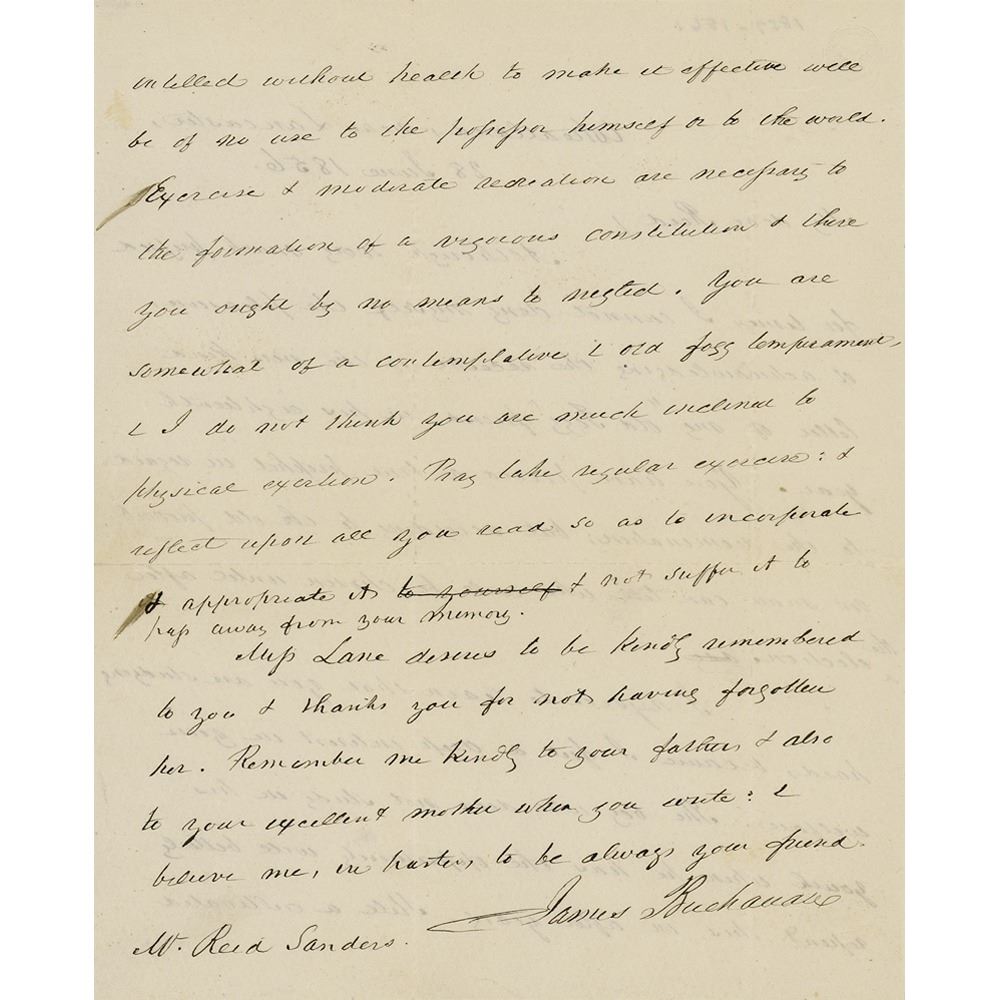 intellect without health to make it effective will
be of no use to the possessor himself or to the world.
Exercise & moderate recreation are necessary to
the formation of a vigorous constitution & these
you ought by no means to neglect. You are
somewhat of a contemplative & old fogy temperament,
& I do not think you are much inclined to
physical exertion. Pray take regular exercise: &
reflect upon all you read so as to incorporate
& appropriate it to yourself & not suffer it to
pass away from your memory.
Miss Lane desires to be kindly remembered
to you & thanks you for not having forgotten
her. Remember me kindly to your father & also
to your excellent mother when you write: &
believe me, in haste, to be always your friend.
James Buchanan
Mr. Reid Sanders.